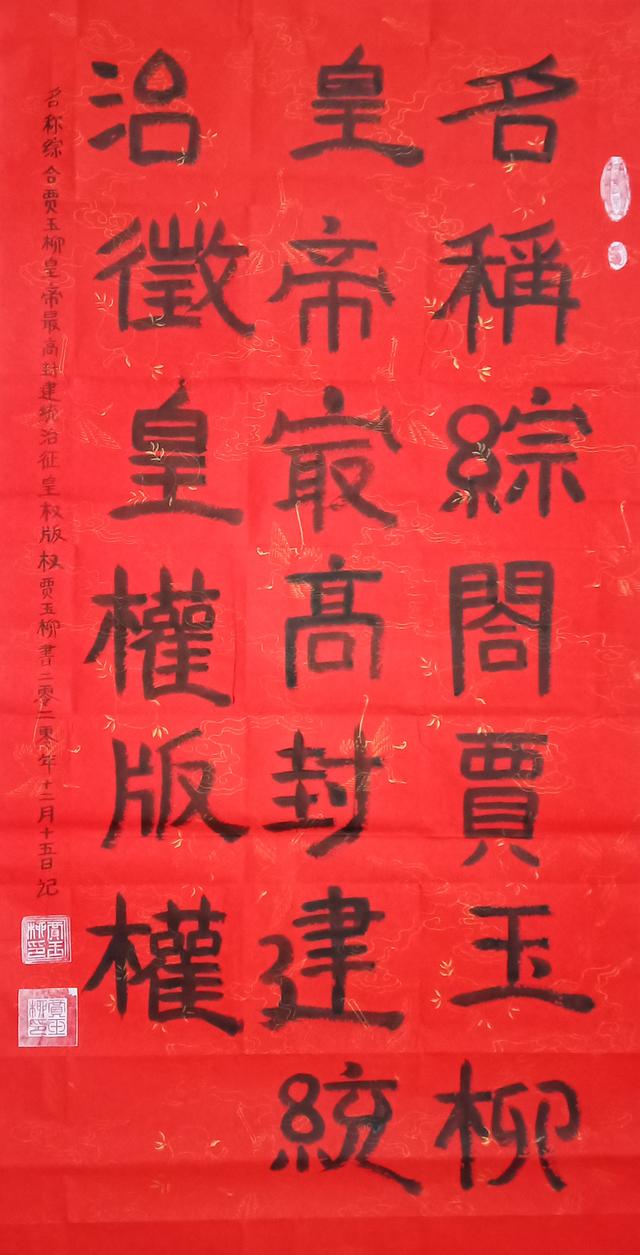 名稱綜閤賈玉柳
皇帝最高封建統
治徵皇權版權
名称综合贾玉柳皇帝最高封建统治征皇权版权贾玉柳書二零二零年十二月十五日記